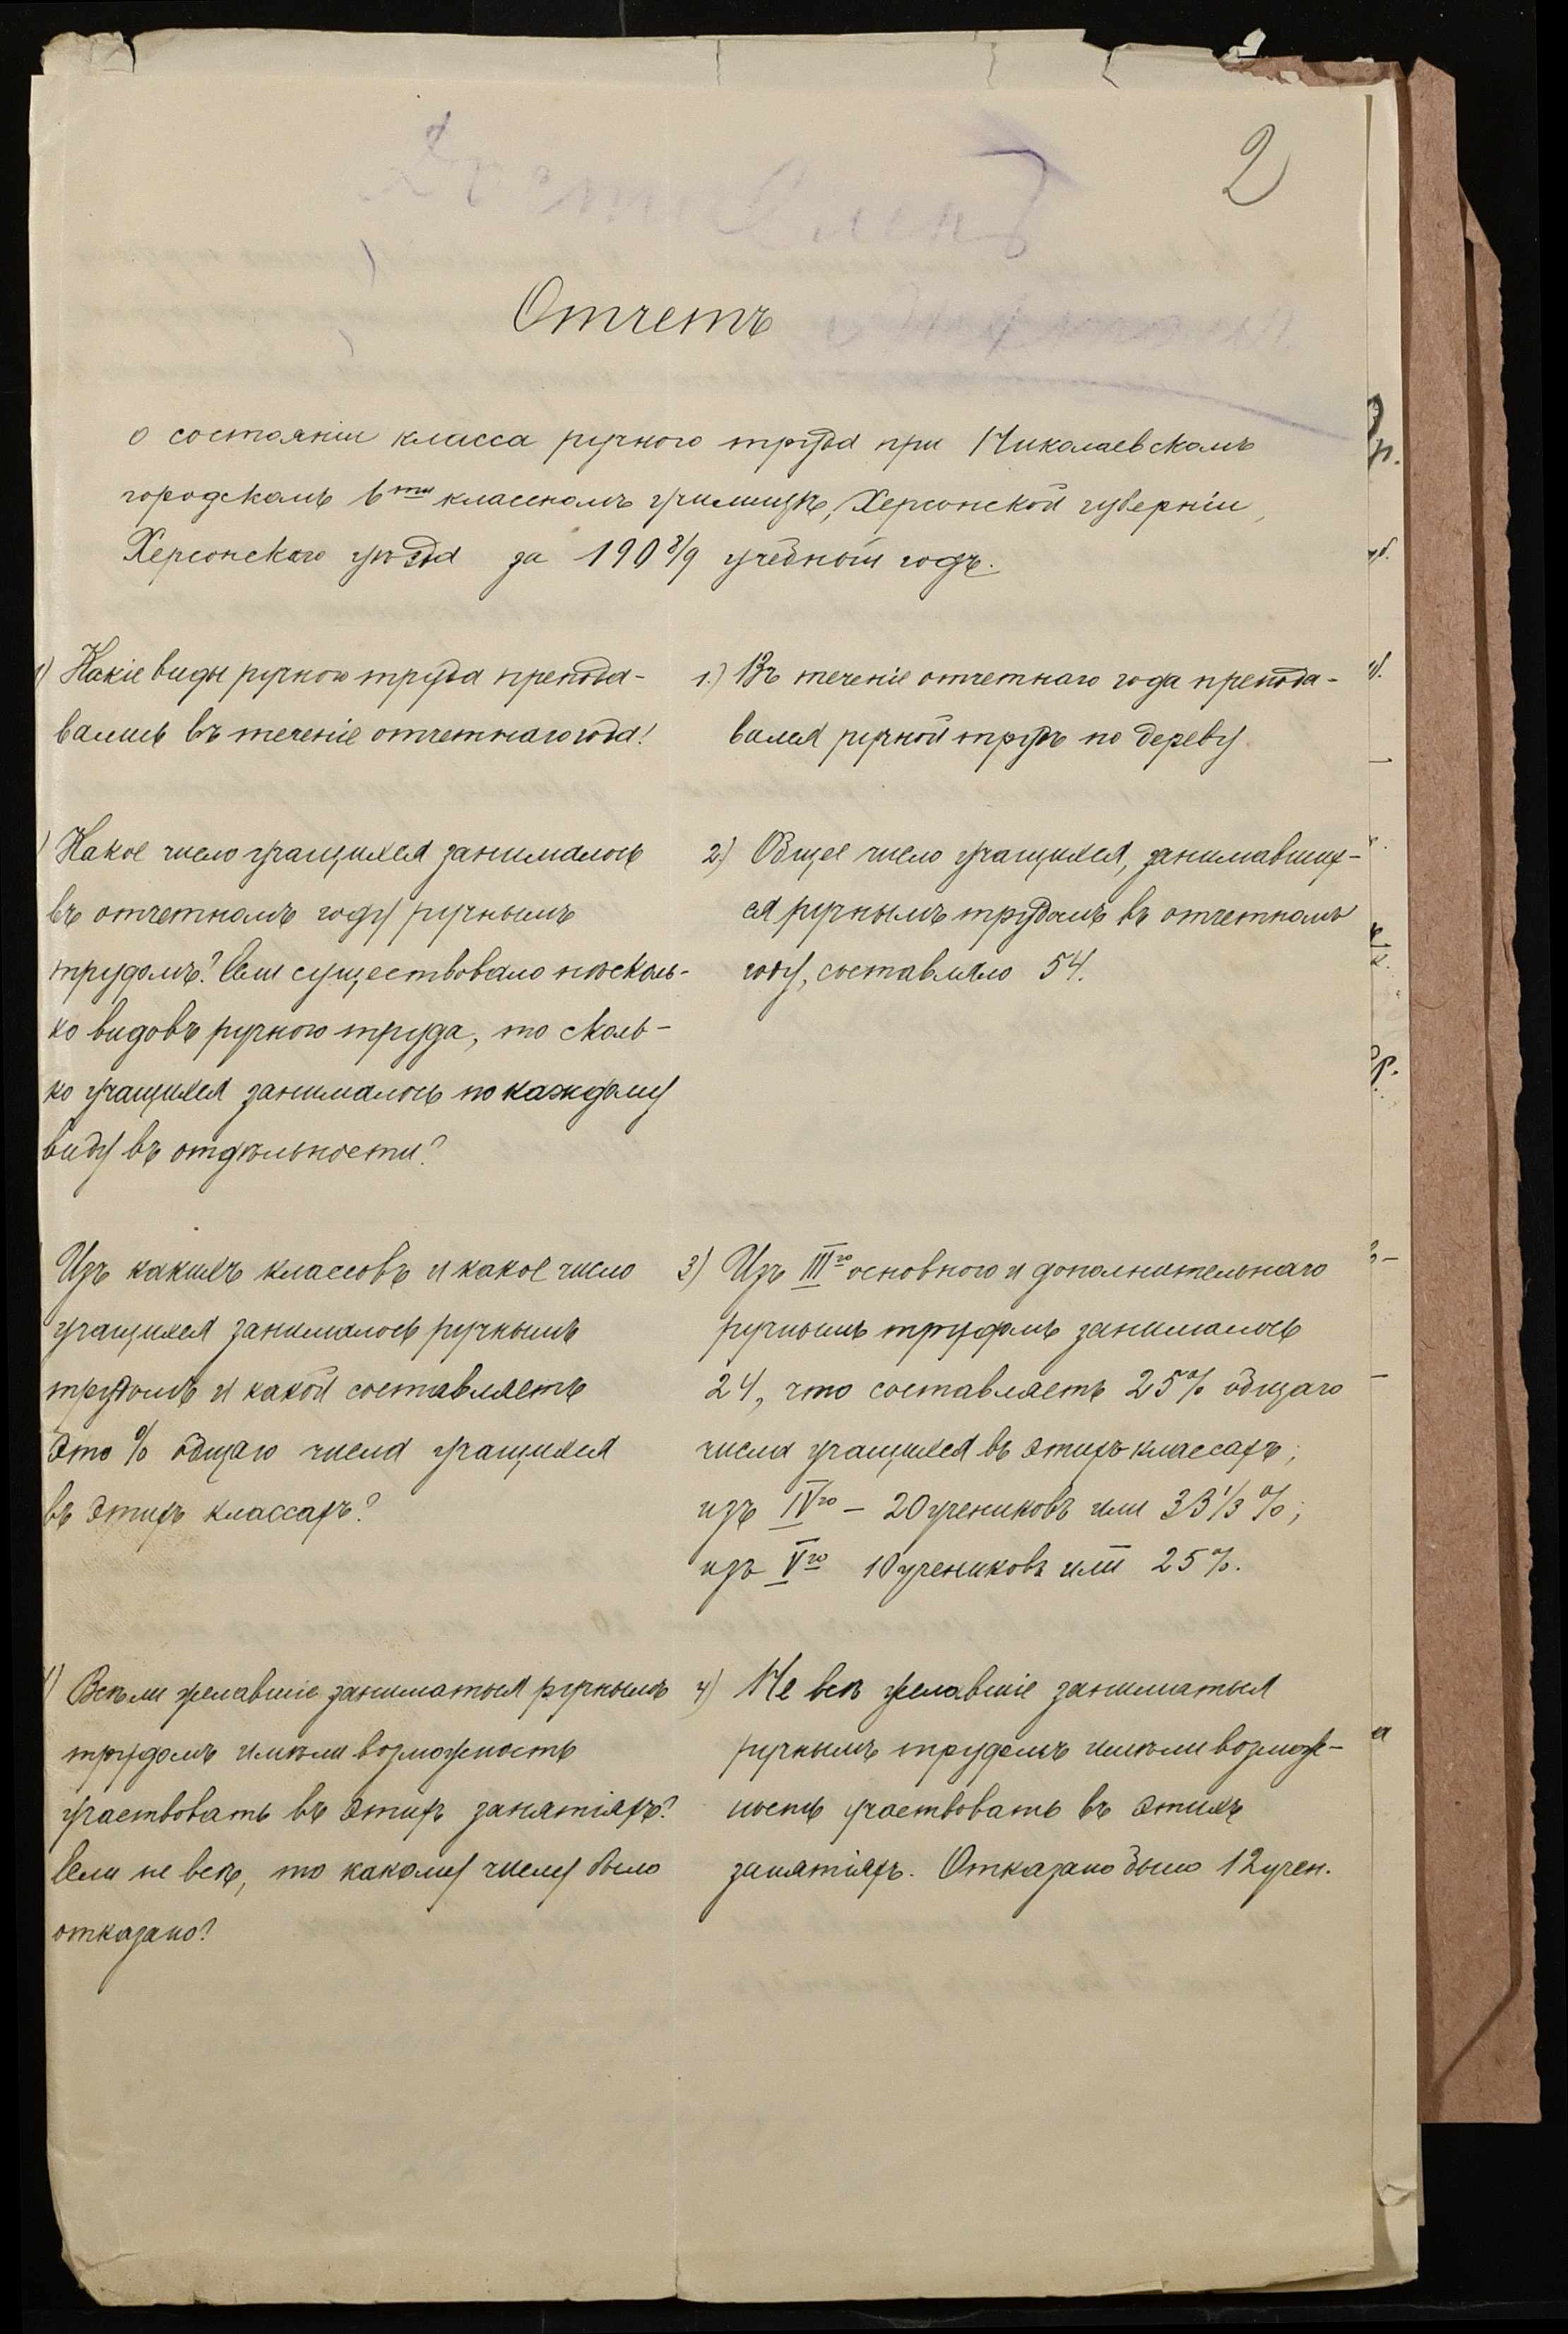 2
Отчетъ
о состояніи класса ручного труда при Николаевскомъ
городскомъ 6ти классномъ училищѣ, Херсонской губерніи,
Херсонскаго уѣзда за 1908/9 учебный годъ.
1) Какіе виды ручного труда препода-
вались въ теченіе отчетнаго года?
1.) Въ теченіе отчетнаго года препода-
вался ручной трудъ по дереву.
) Какое число учащихся занималось
въ отчетномъ году ручнымъ
трудомъ? Если существовало нѣсколь-
ко видовъ ручного труда, то сколь-
ко учащихся занималось по каждому
виду въ отдѣльности?
2.) Общее число учащихся, занимавших-
ся ручнымъ трудомъ въ отчетномъ
году, составляло 54.
Изъ какихъ классовъ и какое число
учащихся занималось ручнымъ
трудомъ и какой составляетъ
это % общаго числа учащихся
въ этихъ классахъ?
3) Изъ IIIго основного и дополнительнаго
ручнымъ трудомъ занималось
24, что составляетъ 25% общаго
числа учащихся въ этихъ классахъ;
изъ IVго – 20 учениковъ или 33 1/3 %;
изъ Vго 10 учениковъ или 25%.
4) Всѣ ли желавшіе заниматься ручнымъ
трудомъ имѣли возможность
участвовать въ этихъ занятіяхъ?
Если не всѣ, то какому числу было
отказано?
4) Не всѣ желавшіе заниматься
ручнымъ трудомъ имѣли возмож-
ность участвовать въ этихъ
занятіяхъ. Отказано было 12 учен.